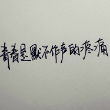 青春是默不作声的疼痛